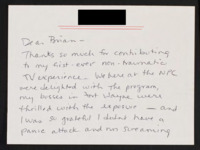 Dear Brian –
Thanks so much for contributing
to my first-ever non-traumatic
TV experience – We here at the NPC
were delighted with the program,
my bosses in Fort Wayne were
thrilled with the exposure – and
I was so grateful I didn't have a
panic attack and run screaming